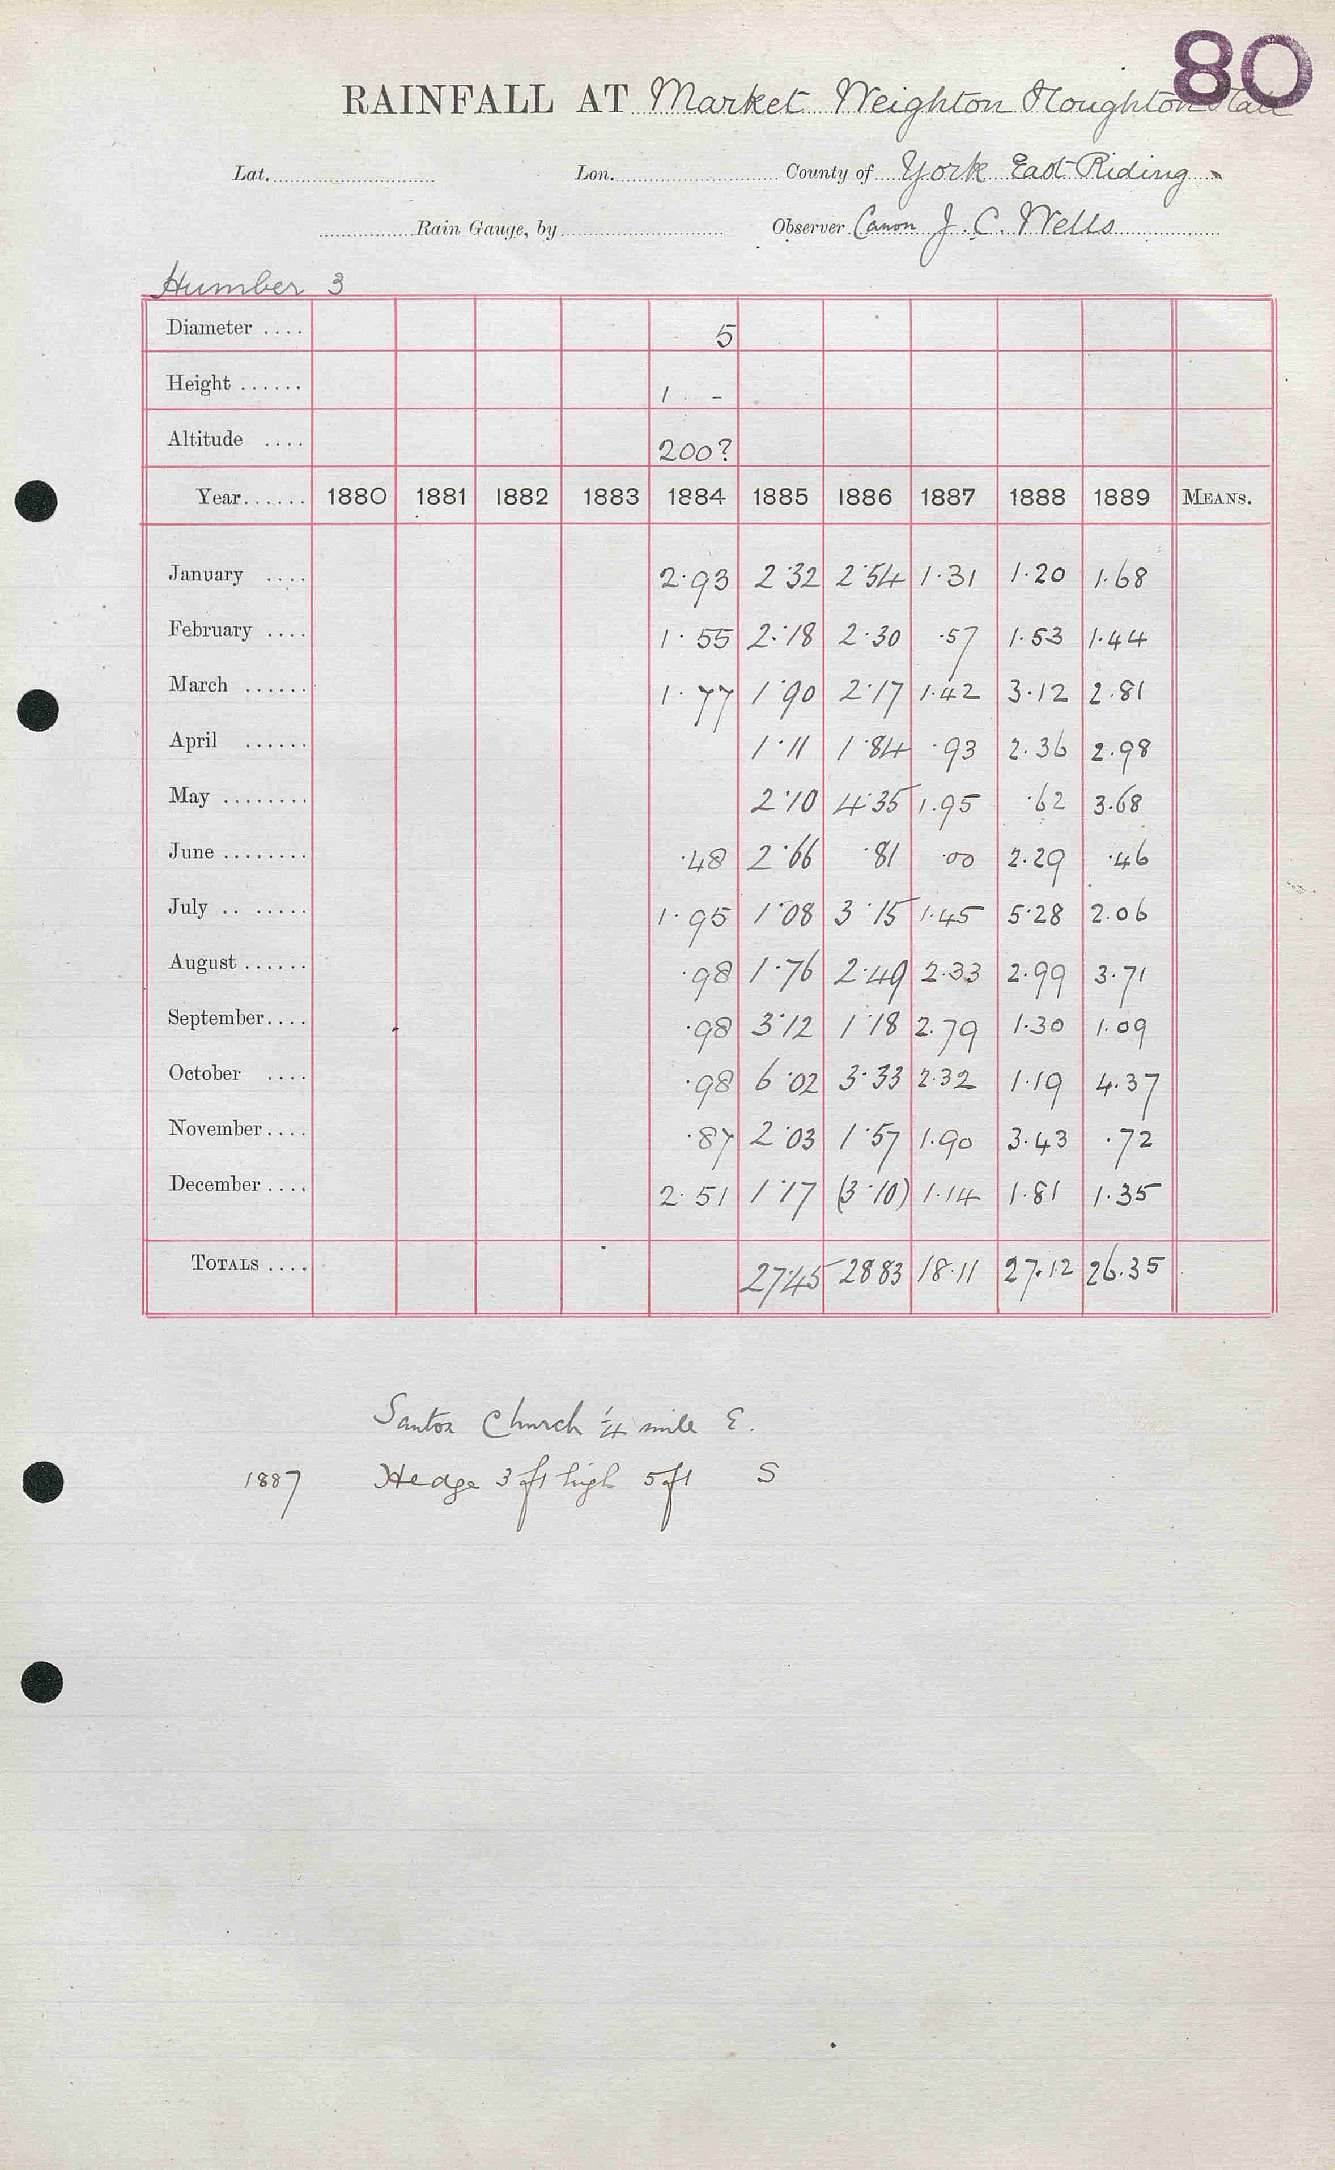 80
RAINFALL AT Market Weighton Houghton Hall
Lat. Lon. County of York East Riding
Rain Gauge, by Observer Canon J. C. Wells
Humber 3
Diameter .... 5
Height ...... 1 -
Altitude .... 200?
Year...... 1880 1881 1882 1883 1884 1885 1886 1887 1888 1889 MEANS.
January .... 2.93 2.32 2.54 1.31 1.20 1.68
February .... 1.55 2.18 2.30 .57 1.53 1.44
March ...... 1.77 1.90 2.17 1.42 3.12 2.81
April ...... 1.11 1.84 .93 2.36 2.98
May ........ 2.10 4.35 1.95 .62 3.68
June ........ .48 2.66 .81 .00 2.29 .46
July .. ..... 1.95 1.08 3.15 1.45 5.28 2.06
August ...... .98 1.76 2.49 2.33 2.99 3.71
September.... .98 3.12 1.18 2.79 1.30 1.09
October .... .98 6.02 3.33 2.32 1.19 4.37
November.... .87 2.03 1.57 1.90 3.43 .72
December .... 2.51 1.17 (3.10) 1.14 1.81 1.35
TOTALS .... 27.45 28.83 18.11 27.12 26.35
Santon Church ¼ mile E.
1887 Hedge 3 ft high 5 ft S